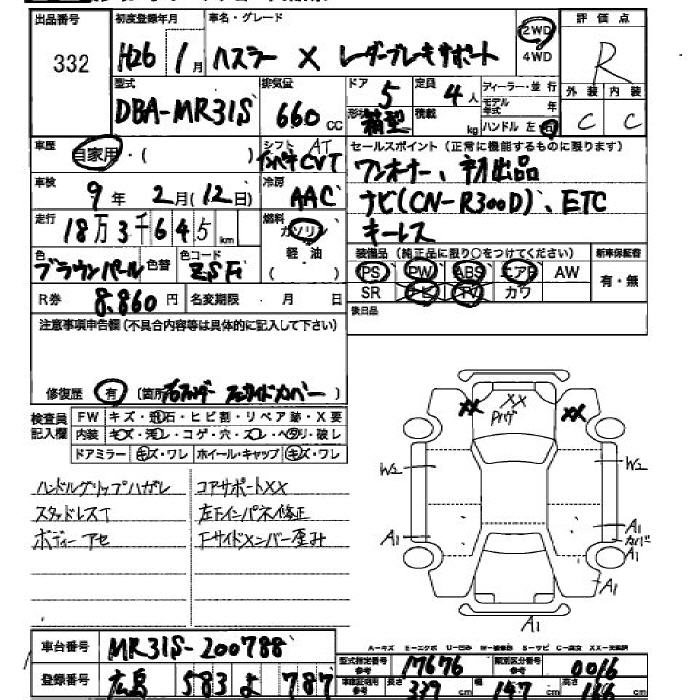 出品番号 初度登録年月 車名・グレード 評価点
332 H26 1月 ハスラー X レーダーブレーキサポート 2WD 4WD R
型式 排気量 ドア 定員 ディーラー・並行 外装 内装
DBA-MR31S 660 CC 5 4人 モデル年式 年 C C
形状 箱型 積載 kg ハンドル 左 右
車歴 自家用・( ) シフト AT インパネCVT セールスポイント(正常に機能するものに限ります)
ワンオーナー、初出品
車検 9年 2月(12日) 冷房 AAC ナビ(CN-R300D)、ETC
走行 18万3千645km 燃料 ガソリン 軽油 キーレス
色 ブラウンパール 色替 色コード ZSF ( ) 装備品(純正品に限り○をつけてください) 新車保証書
PS PW ABS エアB AW 有・無
R券 8,860円 名変期限 ・ 月 日 SR ナビ TV カワ
注意事項申告欄(不具合内容等は具体的に記入して下さい) 後日品
修復歴 有 (箇所
検査員記入欄 FW キズ・飛石・ヒビ割・リペア跡・X要
内装 キズ・汚レ・コゲ・穴・スレ・ヘタリ・破レ
ドアミラー キズ・ワレ ホイール・キャップ キズ・ワレ
XX XX XX
Pハゲ
W2 W2
A1 A1
カバー
A1
A1
ハンドルグリップハガレ コアサポートXX
スタッドレスT 左Fインパネ修正
ボディーアセ Fサイドメンバー歪み
車台番号 MR31S-200788
A-キズ E-エクボ U-凹ミ W-補修跡 S-サビ C-腐食
型式指定番号 参考 17676 類別区分番号 参考 0016
登録番号 広島 583 よ 787
車体証明用 参考 長さ 339 cm 幅 147 cm 高さ 166 cm